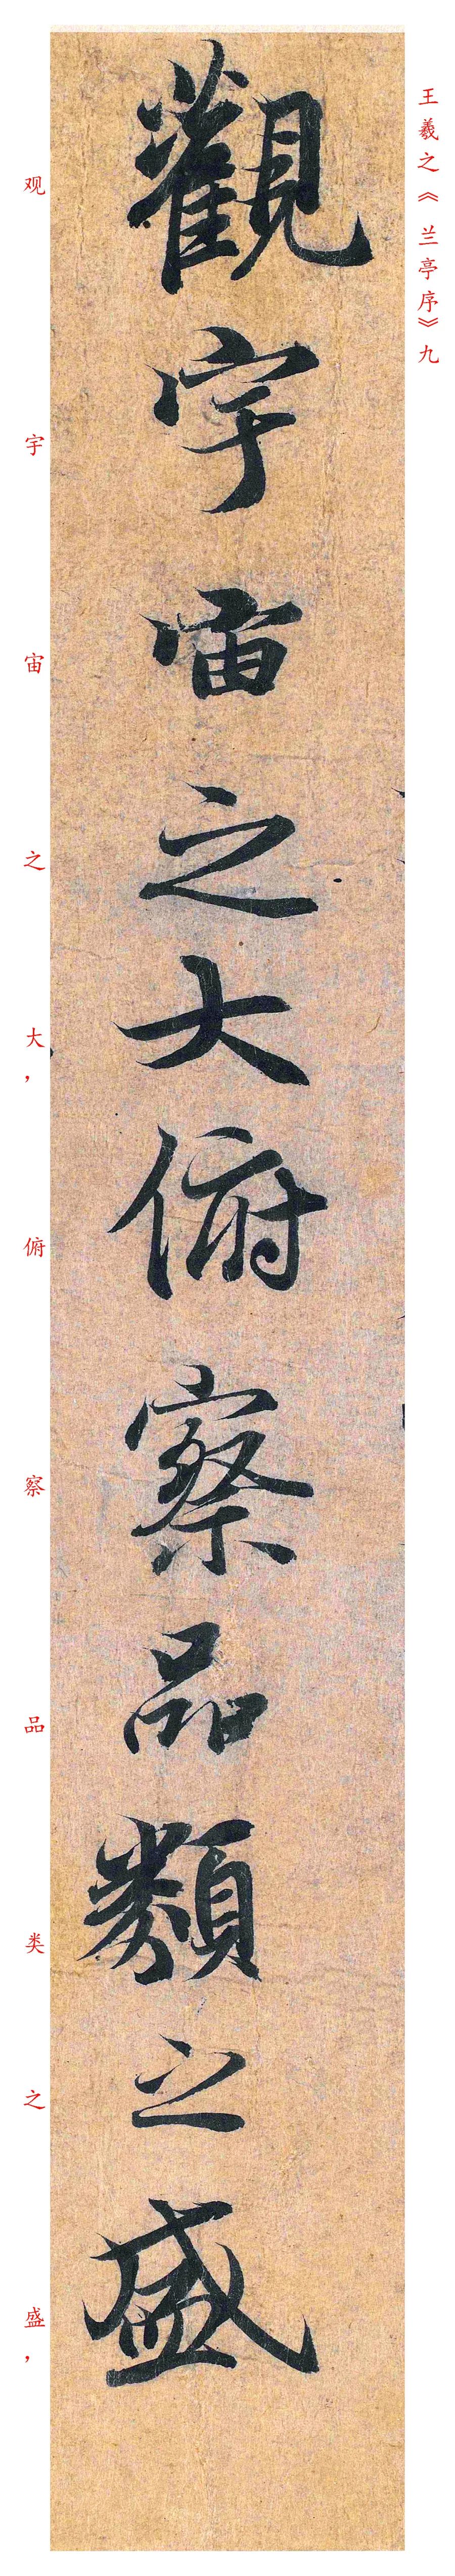 王羲之《兰亭序》九
觀宇宙之大俯察品類之盛
观宇宙之大，俯察品类之盛，